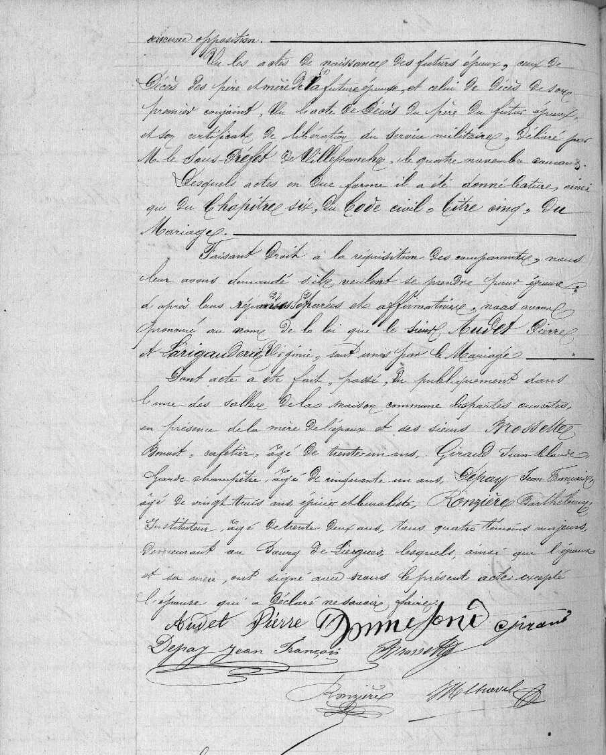 aucune opposition.
Vu les actes de naissance des futurs époux, ceux de
Décès des père et mère de la future épouse, et celui de Décès de son
premier conjoint, Vu l'acte de Décès du père du futur époux,
et son certificat de libération du service militaire, délivré par
M. le Sous-Préfet de Villefranche, le quatre novembre courant.
Desquels actes en due forme il a été donné lecture, ainsi
que du Chapitre six, du Code civil, titre cinq, du
Mariage.
Faisant Droit à la réquisition des comparants, nous
leur avons demandé s'ils veulent se prendre pour époux,
d'après leurs réponses séparées et affirmatives, nous avons
prononcé au nom de la loi que le sieur Audet Pierre
et Virginie, sont unis par le Mariage
Dont acte a été fait, passé, lu publiquement dans
l'une des salles de la maison commune les portes ouvertes,
en présence de la mère de l'époux et des sieurs
Benoit, cafetier, âgé de trente un ans, Giraud Jean Claude
garde champêtre, âgé de cinquante un ans, Depay Jean François,
âgé de vingt trois ans, Ronzière Barthélemy
Instituteur, âgé de trente deux ans, tous quatre témoins majeurs,
demeurant au Bourg de lesquels, ainsi que l'époux
et sa mère, ont signé avec nous le présent acte excepté
l'épouse qui a déclaré ne savoir faire.
Audet Pierre Giraud
Depay Jean François
Ronzière